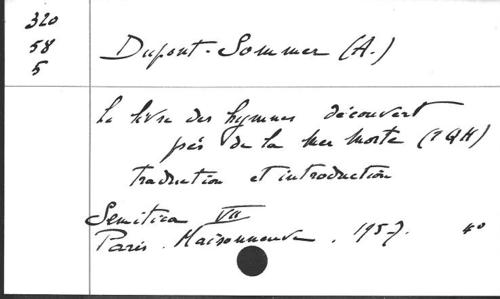 320
58
5
Dupont-Sommer (A.)
Le livre des hymnes découvert
près de la Mer Morte (1QH)
traduction et introduction
Semitica VII
Paris. Maisonneuve. 1957. 4°